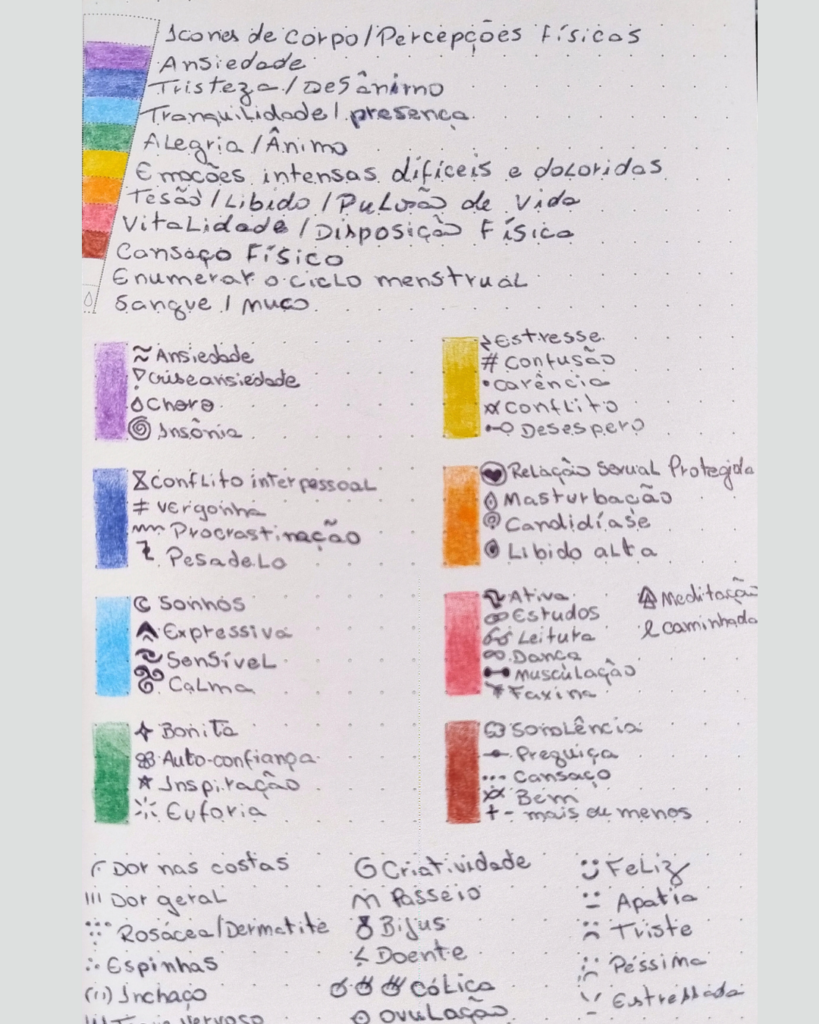 Ícones de corpo/Percepções Físicas
Ansiedade
Tristeza/Desânimo
Tranquilidade/presença
Alegria/Ânimo
Emoções intensas difíceis e doloridas
Tesão/Libido/Pulsão de Vida
Vitalidade/Disposição Física
Cansaço Físico
Enumerar o ciclo menstrual
Sangue/muco
Ansiedade
Crise ansiedade
Choro
Insônia
Estresse
# Confusão
Carência
Conflito
Desespero
Conflito interpessoal
Vergonha
Procrastinação
Pesadelo
Relação Sexual Protegida
Masturbação
Candidíase
Libido alta
Sonhos
Expressiva
Sensível
Calma
Ativa
Estudos
Leitura
Dança
Musculação
Faxina
Meditação
caminhada
Bonita
Auto-confiança
Inspiração
Euforia
Sonolência
Preguiça
Cansaço
Bem
+- mais ou menos
Dor nas costas
Dor geral
Rosácea/Dermatite
Espinhas
Inchaço
nervoso
Criatividade
Passeio
Bijus
Doente
Cólica
Ovulação
Feliz
Apatia
Triste
Péssima
Estressada